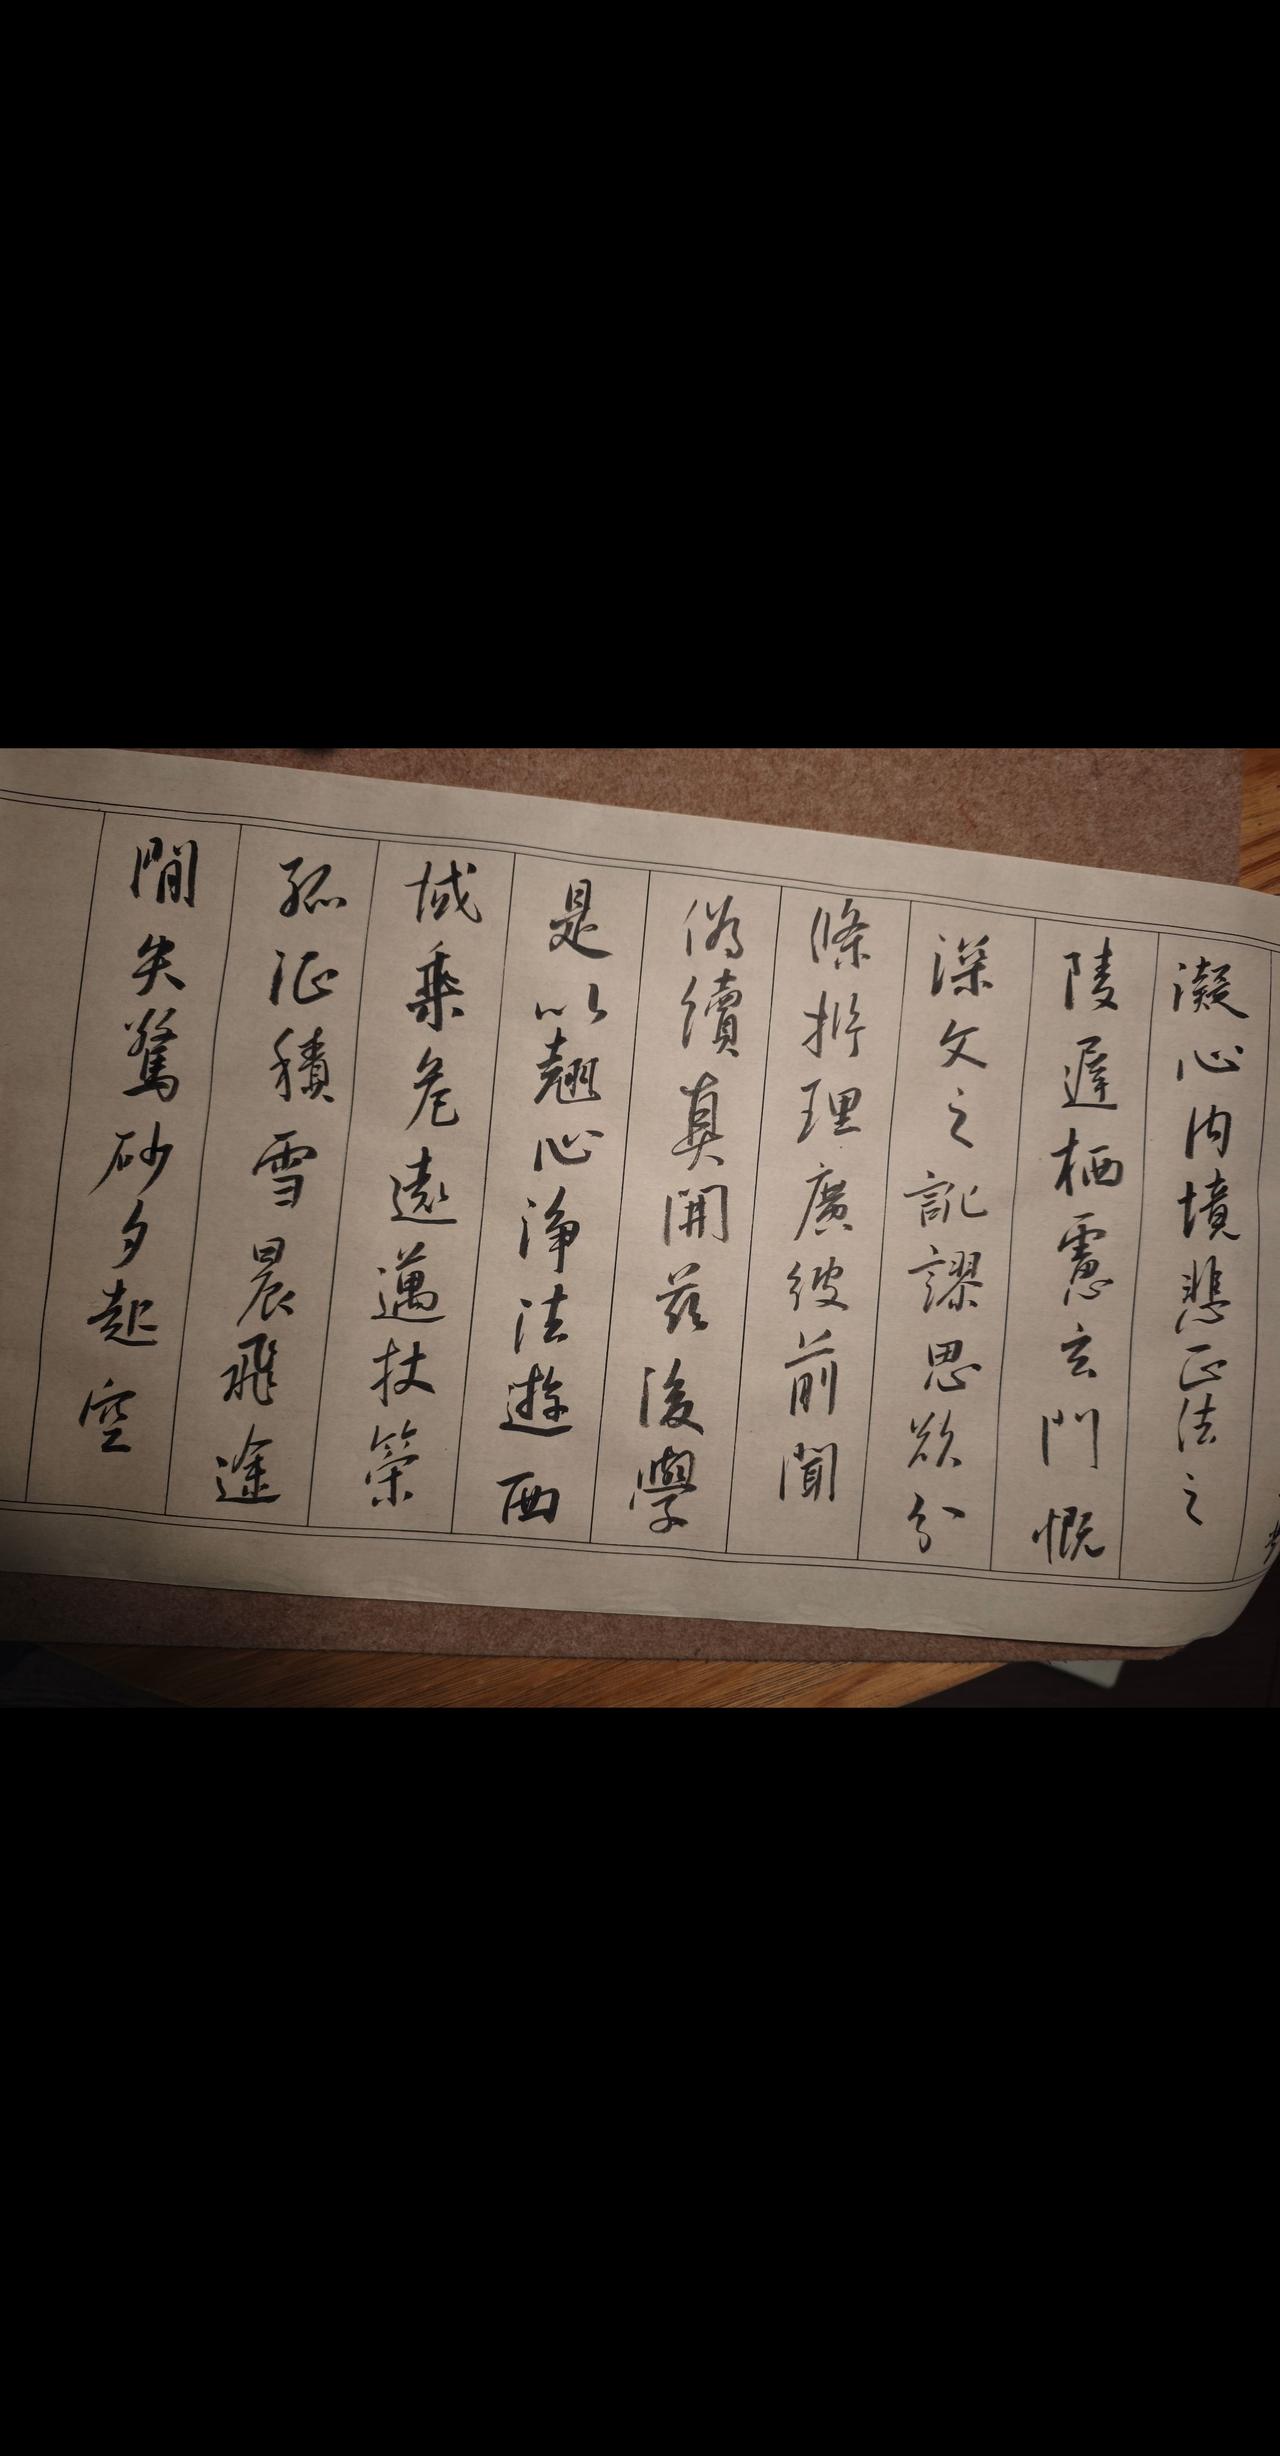 凝心内境悲正法之
陵遲栖慮玄門慨
深文之訛謬思欲分
條析理廣彼前聞
偽續真開茲後學
是以翹心淨法遊西
域乘危遠邁杖策
孤征積雪晨飛途
間失驚砂夕起空